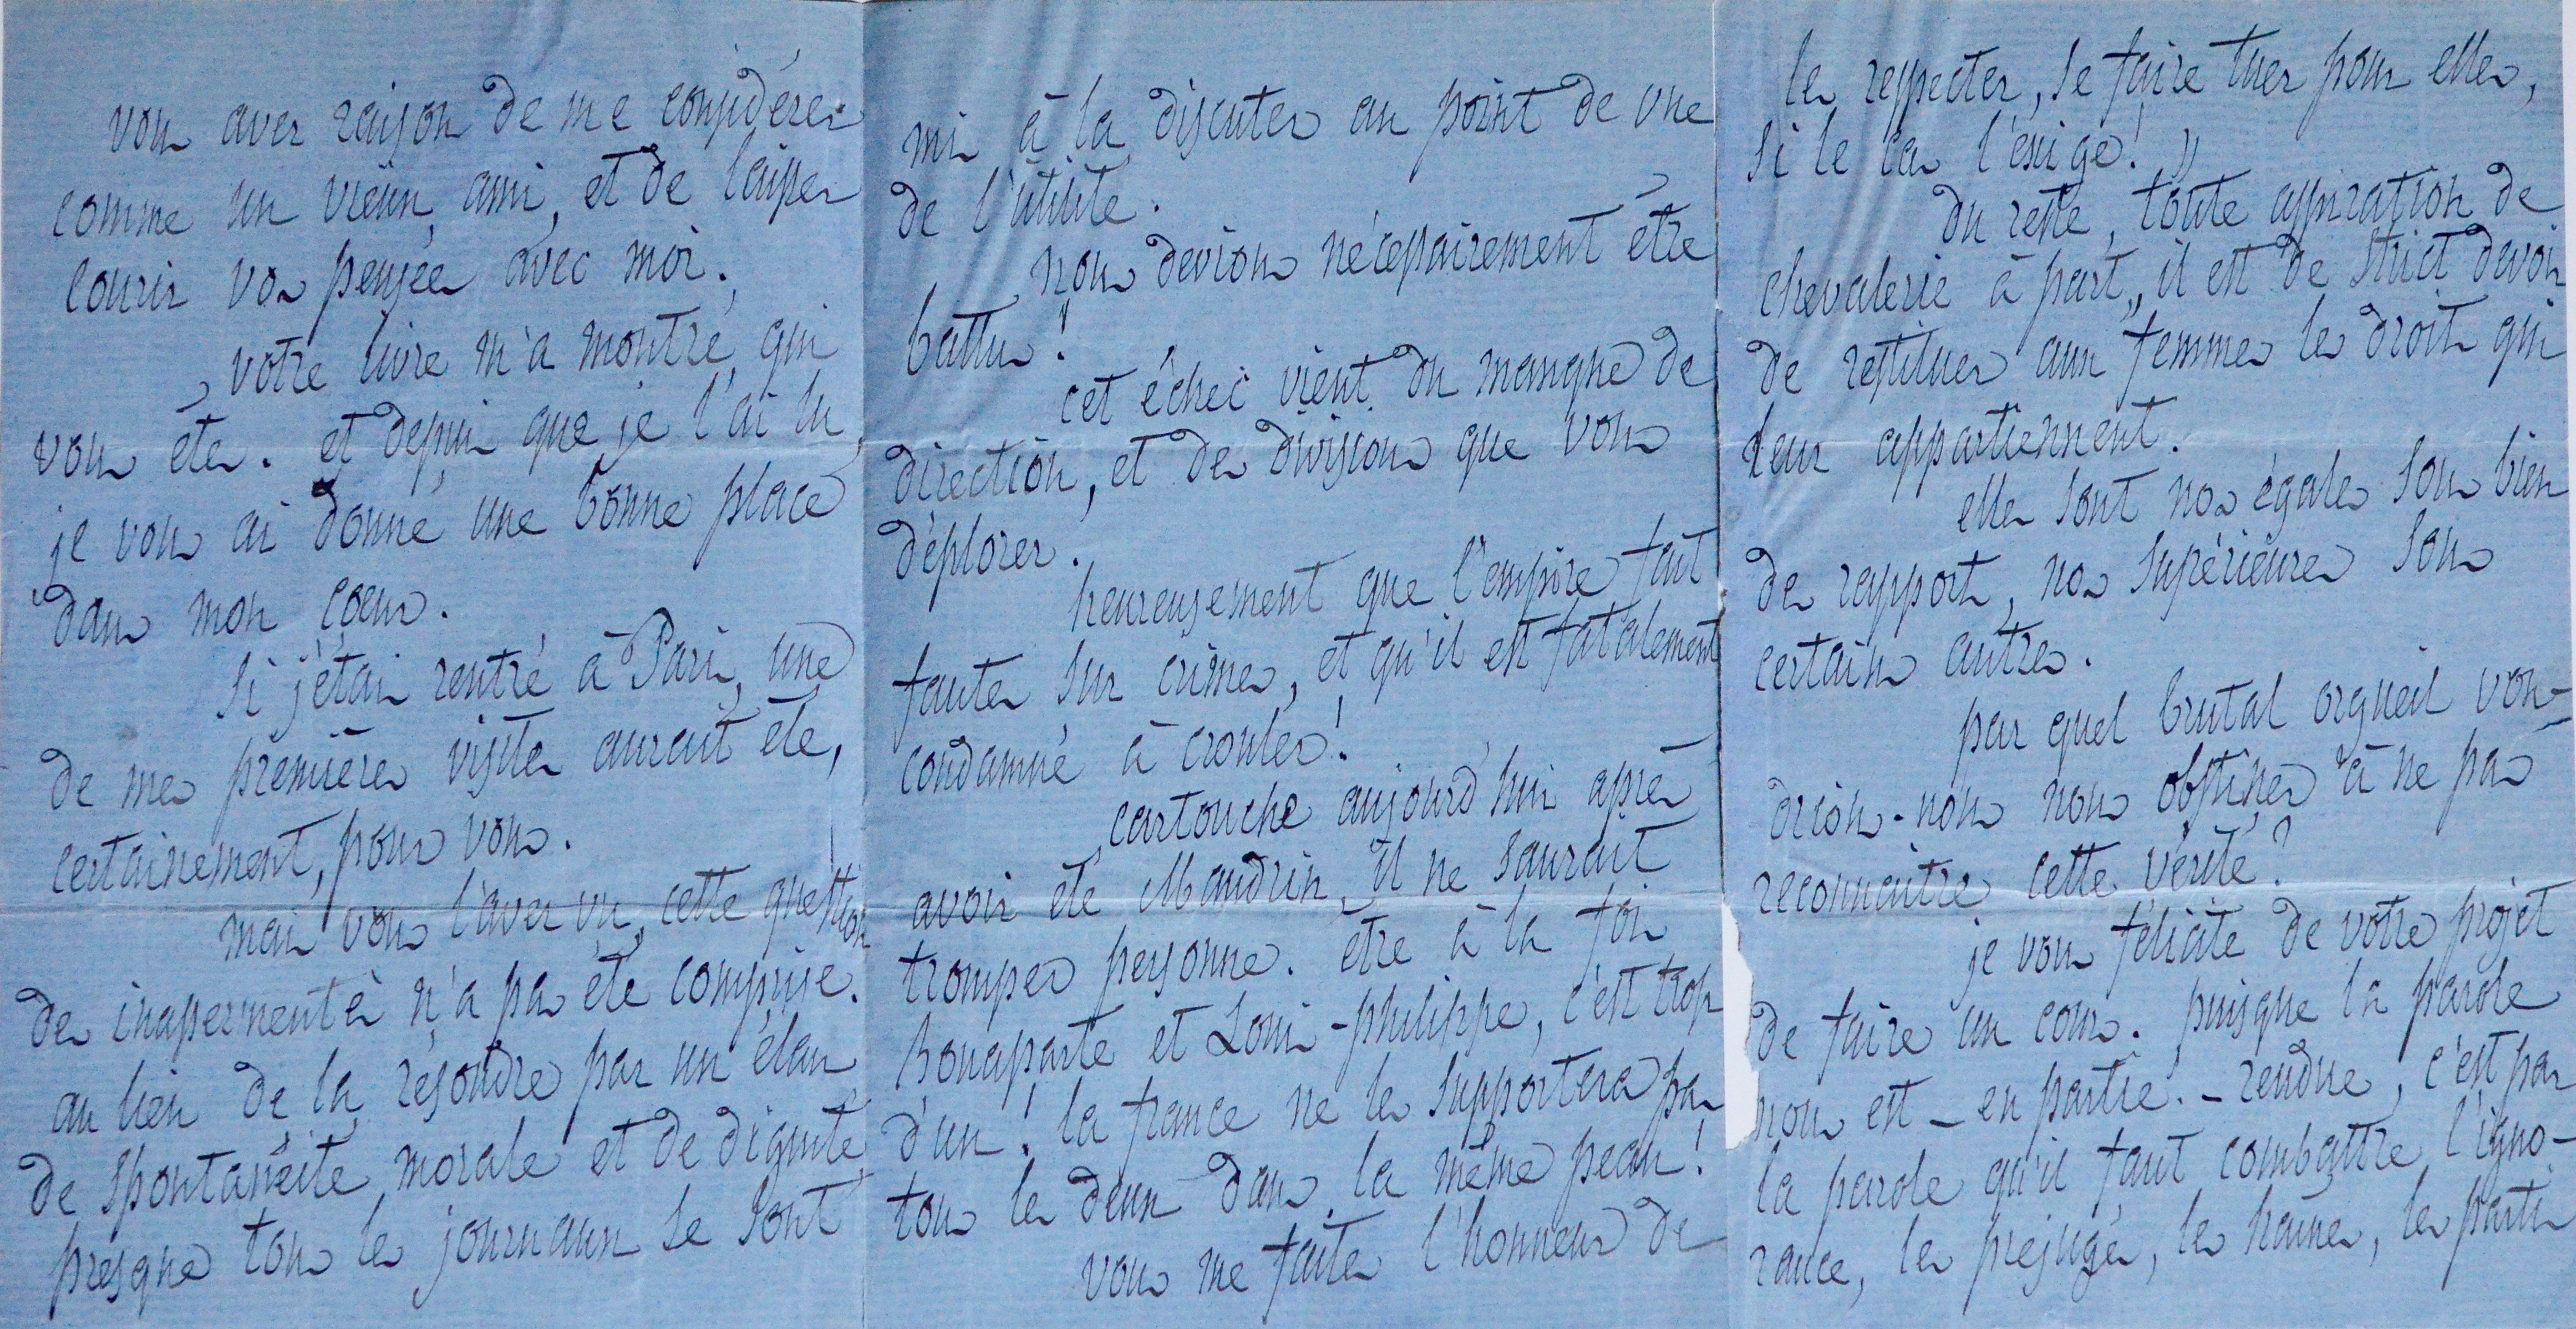 vous avez raison de me considérer
comme un vieux ami, et de laisser
courir vos pensées avec moi.
votre livre m'a montré qui
vous êtes. et depuis que je l'ai lu,
je vous ai donné une bonne place
dans mon coeur.
si j'étais rentré à Paris, une
de mes premières visites aurait été,
certainement, pour vous.
mais vous l'avez vu, cette question
des inassermentés n'a pas été comprise.
au lieu de la résoudre par un élan
de spontanéité morale et de dignité
presque tous les journaux se sont
mis à la discuter au point de vue
de l'utilité.
nous devions nécessairement être
battus!
cet échec vient du manque de
direction, et des divisions que vous
déplorez.
heureusement que l'empire fait
fautes sur crimes, et qu'il est fatalement
condamné à crouler!
cartouche aujourd'hui après
avoir été Mandrin, il ne saurait
tromper personne. être à la fois
Bonaparte et Louis-philippe, c'est trop
d'un! la france ne les supportera pas
tous les deux dans la même peau!
vous me faites l'honneur de
les respecter, se faire tuer pour elles,
si le cas l'exige! »
du reste, toute aspiration de
chevalerie à part, il est de strict devoir
de restituer aux femmes les droits qui
leur appartiennent.
elles sont nos égales sous bien
des rapports, nos supérieures sous
certains autres.
par quel brutal orgueil vou-
drions-nous nous obstiner à ne pas
reconnaître cette vérité?
je vous félicite de votre projet
de faire un cours. puisque la parole
nous est - en partie. - rendue, c'est par
la parole qu'il faut combattre l'igno-
rance, les préjugés, les haines, les partis